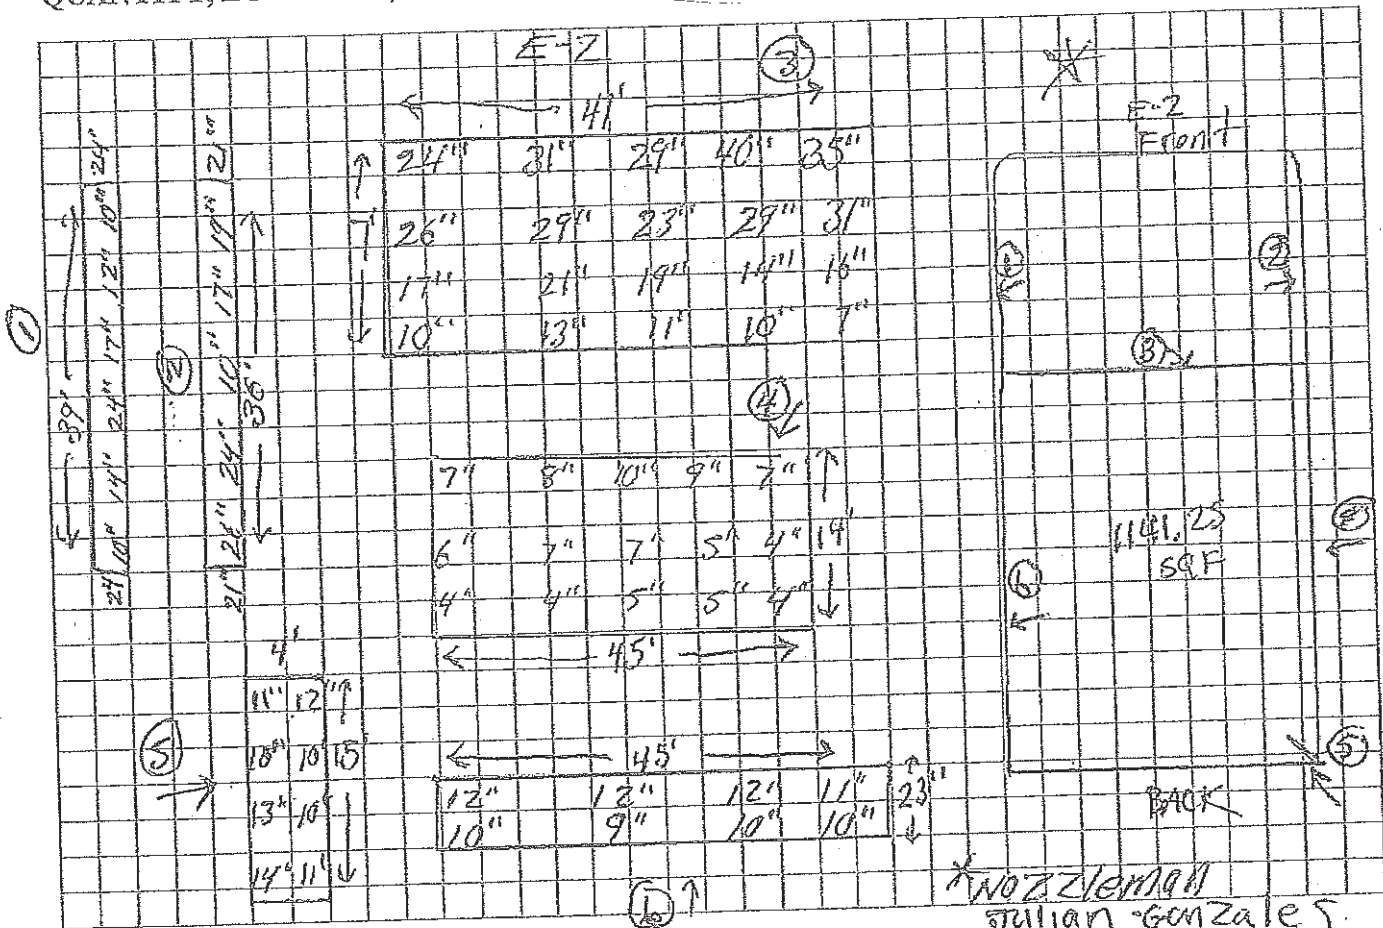 E-2
③
41'
24" 31" 29" 40" 35"
7'
26" 29" 23" 29" 31"
17" 21" 19" 14" 16"
10" 13" 11" 10" 7"
①
39'
24" 10" 14" 24" 17" 12" 10" 24"
②
21" 21" 24" 10" 17" 19" 21"
④
7" 8" 10" 9" 7"
6" 7" 7" 5" 4"
4" 4" 5" 5" 4"
45'
⑤
4'
11" 12"
10" 10"
13" 10"
14" 11"
15'
45'
12" 12" 12" 11"
10" 9" 10" 10"
23"
⑥
E-2
Front
②
③
1141.25
SQF
②
⑥
⑤
BACK
*NOZZLEMAN
Julian Gonzales.